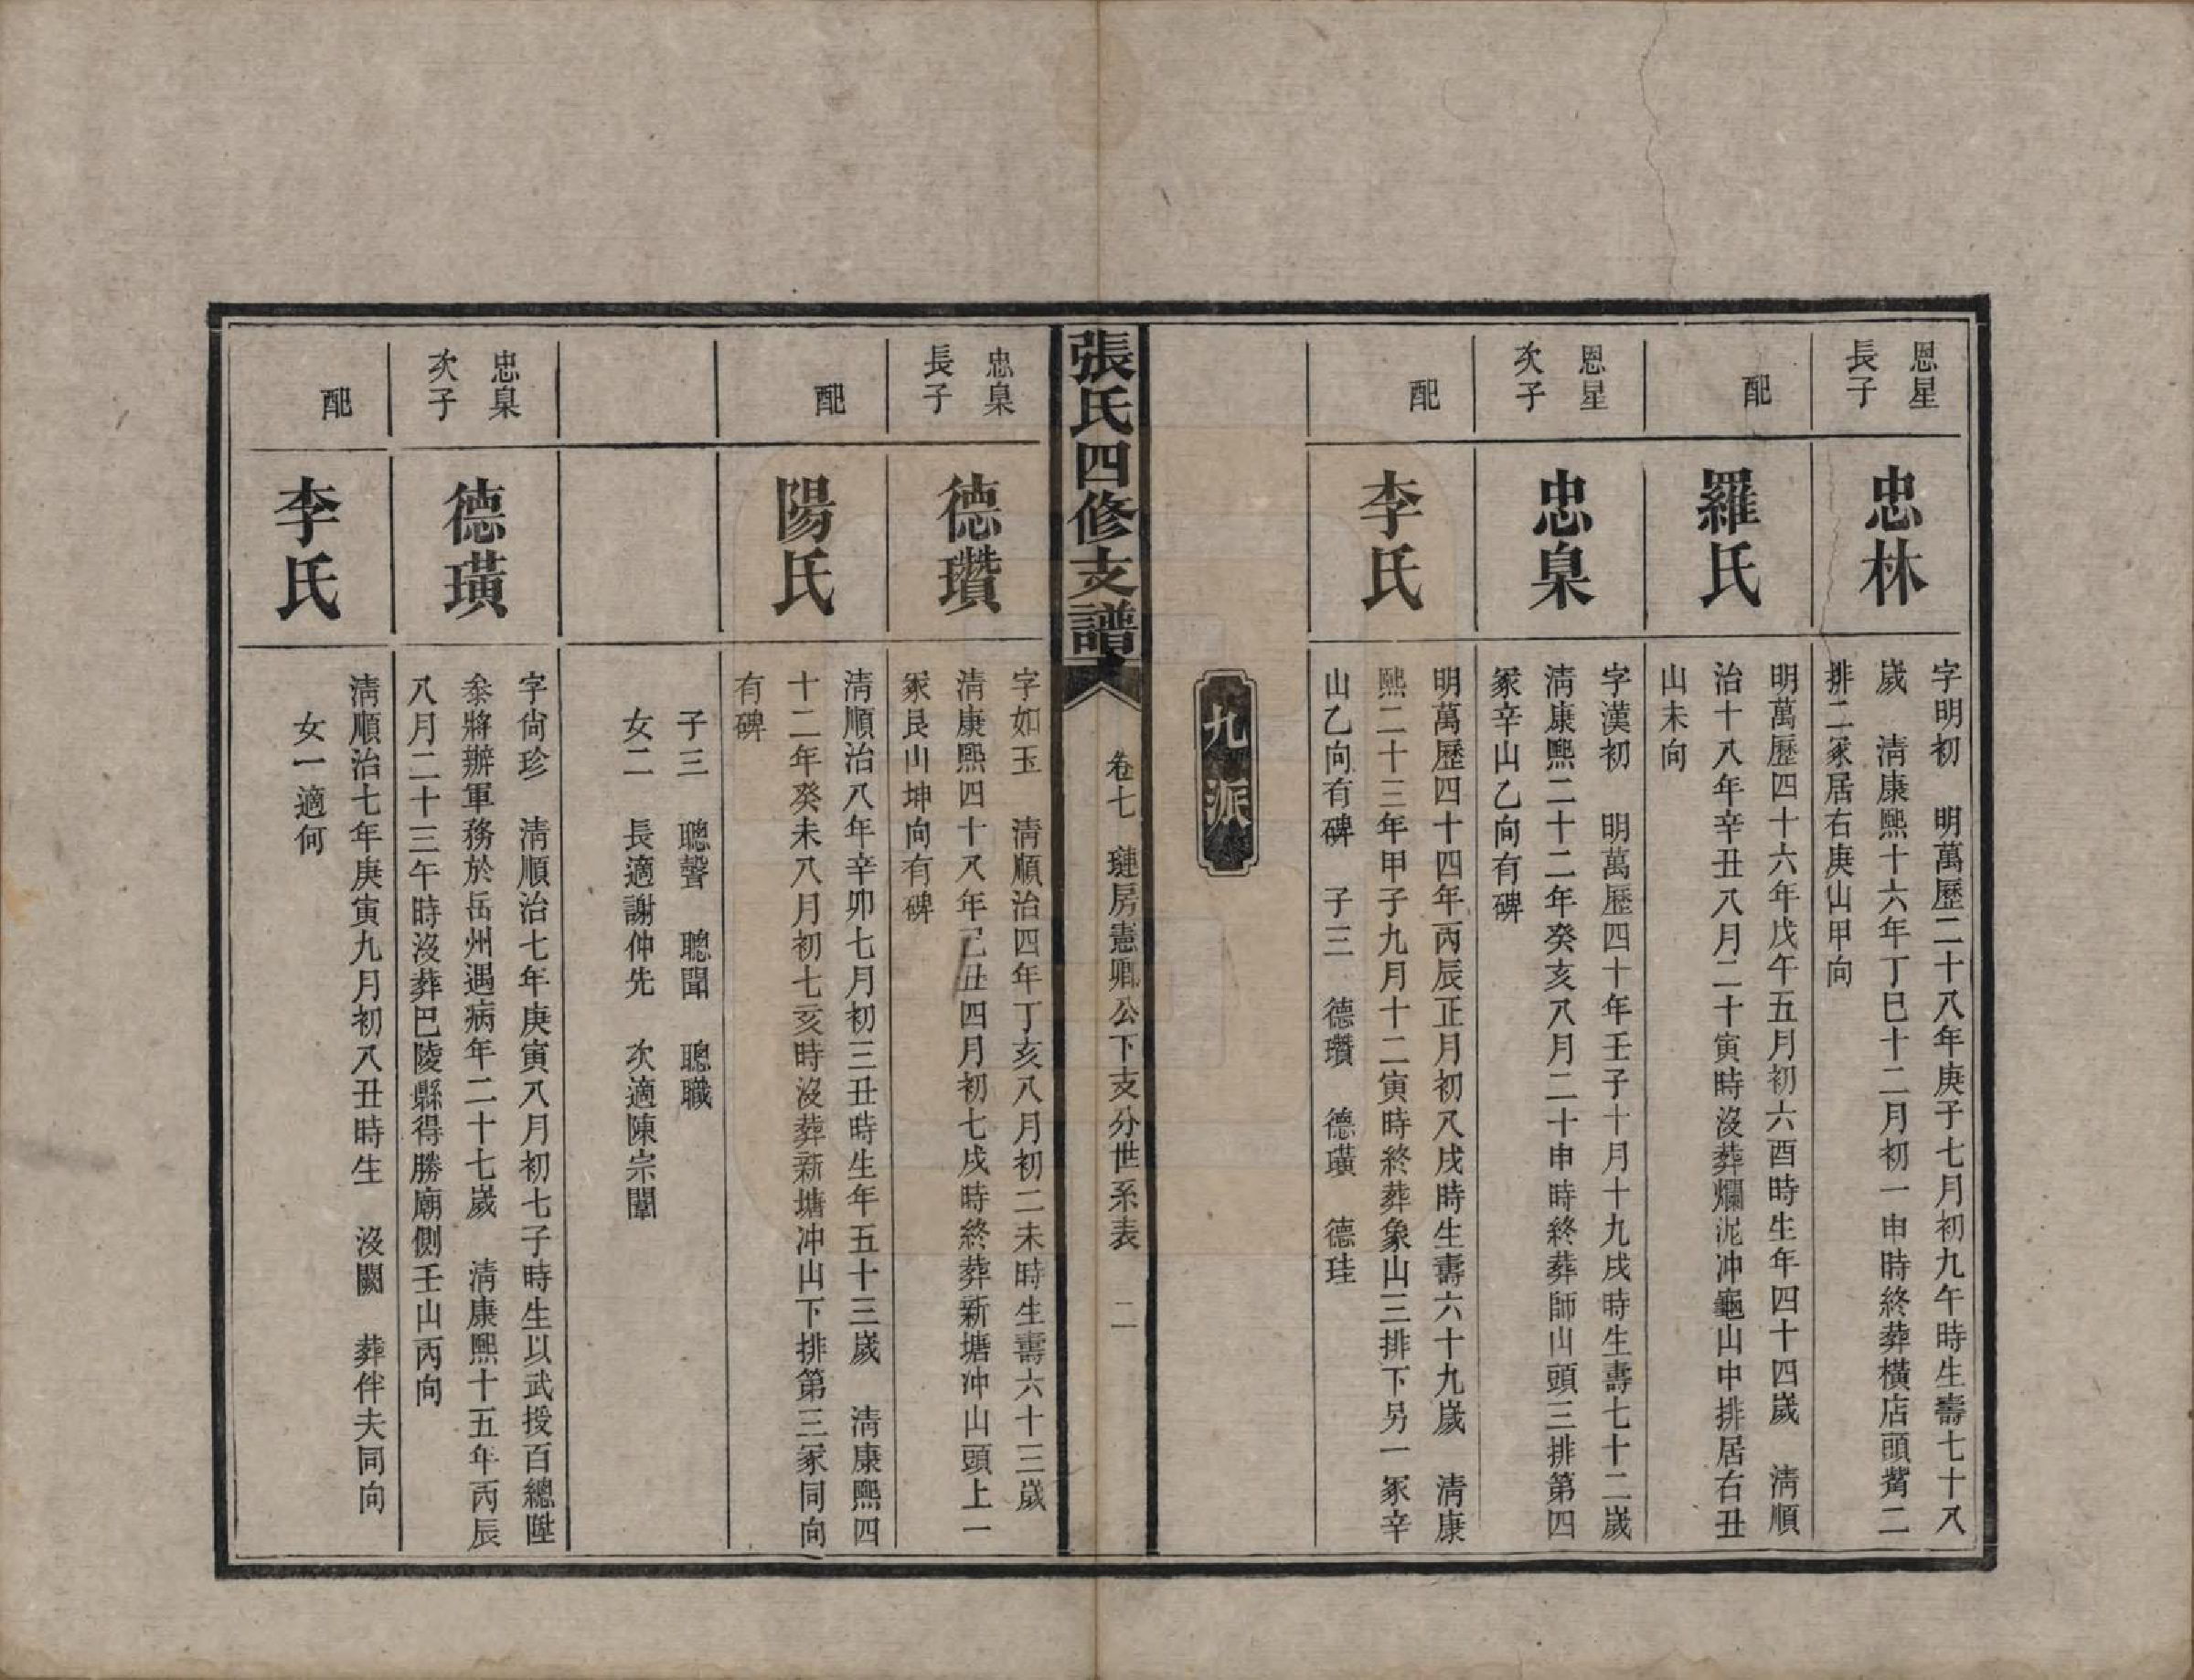 恩星
長子
忠林
字明初　明萬歷二十八年庚子七月初九午時生壽七十八
歲　淸康熙十六年丁巳十二月初一申時終葬橫店頭嘴二
排二冢居右庚山甲向
配
羅氏
明萬歷四十六年戊午五月初六酉時生年四十四歲　淸順
治十八年辛丑八月二十寅時沒葬爛泥冲龜山中排居右丑
山未向
恩星
次子
忠臬
字漢初　明萬歷四十年壬子十月十九戌時生壽七十二歲
淸康熙二十二年癸亥八月二十申時終葬師山頭三排第四
冢辛山乙向有碑
配
李氏
明萬歷四十四年丙辰正月初八戌時生壽六十九歲　淸康
熙二十三年甲子九月十二寅時終葬象山三排下另一冢辛
山乙向有碑　子三　德瓚　德璜　德珪
九派
張氏四修支譜
卷七　璉房憲卿公下支分世系表　二
忠臬
長子
德瓚
字如玉　淸順治四年丁亥八月初二未時生壽六十三歲
淸康熙四十八年己丑四月初七戌時終葬新塘冲山頭上一
冢艮山坤向有碑
配
陽氏
淸順治八年辛卯七月初三丑時生年五十三歲　淸康熙四
十二年癸未八月初七亥時沒葬新塘冲山下排第三冢同向
有碑
子三　聰聲　聰聞　聰職
女二　長適謝仲先　次適陳宗闈
忠臬
次子
德璜
字尙珍　淸順治七年庚寅八月初七子時生以武授百總陞
叅將辦軍務於岳州遇病年二十七歲　淸康熙十五年丙辰
八月二十三午時沒葬巴陵縣得勝廟側壬山丙向
配
李氏
淸順治七年庚寅九月初八丑時生　沒闕　葬伴夫同向
女一適何